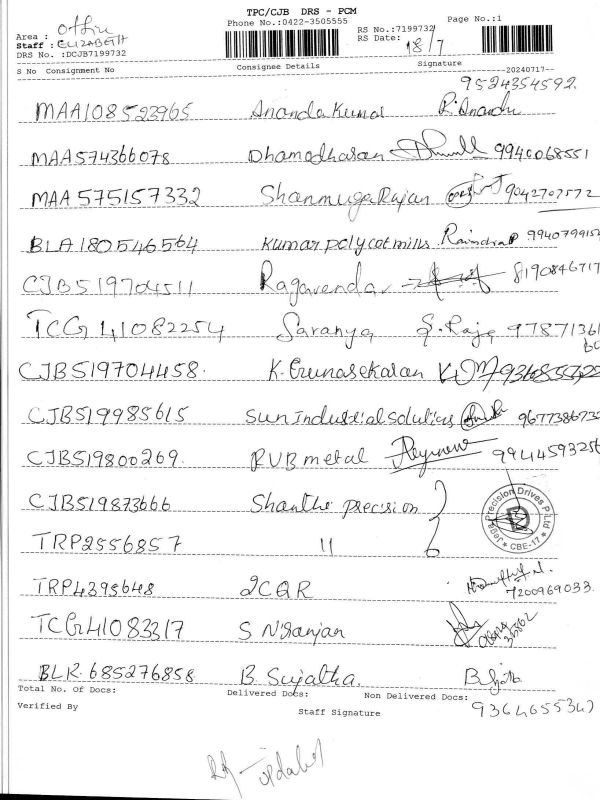 TPC/CJB DRS - PCM
Phone No.:0422-3505555
Page No.:1
Area : Office
RS No.:7199732
Staff : ELIZABETH
RS Date: 18/7
DRS No. :DCJB7199732
S No Consignment No Consignee Details Signature --20240717--
9524354592.
MAA108523965 Ananda Kumar R. Anandu
MAA574366078 Dhamodharan 9940068551
MAA575157332 Shanmuga Rajan 9042707572
BLA180546564 Kumar polycot mills 994079915
CJB519704511 Ragavendar 819084671
TCG41082254 Saranya S. Raja 9787136
CJB519704458. K. Gunasekaran
CJB519985615 Sun Industrial Solutions 967738673
CJB519800269. RVB metal 994459325
CJB519873666 Shanthi precision
Jegan Precision Drives P Ltd CBE-17
TRP2556857 11
TRP4395648 2CQR 7200969033.
TCG41083317 S Niranjan
BLR.685276858 B. Sujatha.
Total No. of Docs: Delivered Docs: Non Delivered Docs:
Verified By Staff Signature